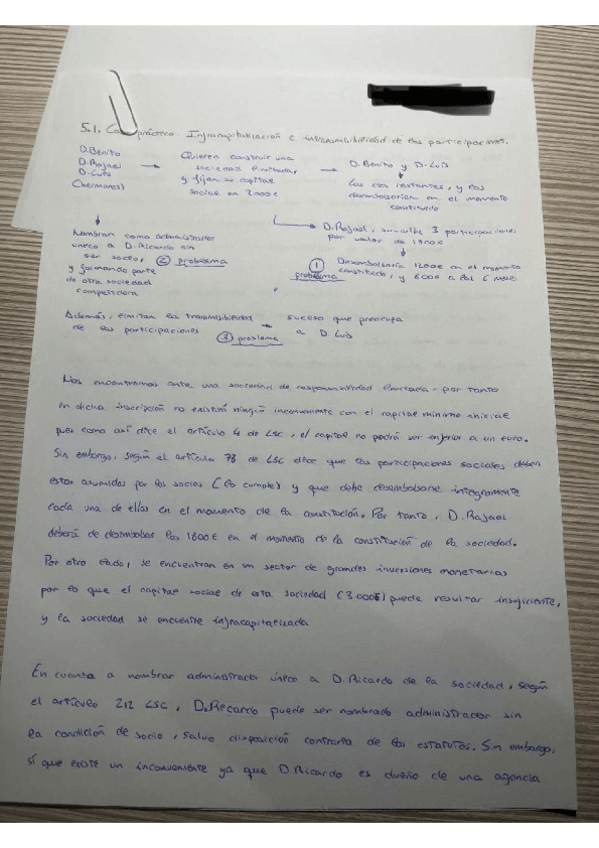 5.1. Caso práctico. Infracapitalización e intransmisibilidad de las participaciones.
D. Benito
D. Rafael
D. Luis
(hermanos)
Quieren construir una
sociedad limitada,
y fijan su capital
social en
D. Benito y D. Luis
Las dos restantes, y las
desembolsarían en el momento
constitutivo
D. Rafael, 3 participaciones
por valor de 1800€
Nombran como administrador
único a D. Ricardo sin
ser socio, ② problema
y formando parte
de otra sociedad
competidora
① Desembolsaría 1200€ en el momento
problema constitutivo, y 600€ a los 6 meses
Además, limitan la transmisibilidad
de las participaciones ③ problema
suceso que preocupa
a D. Luis
Nos encontramos ante una sociedad de responsabilidad limitada, por tanto
en dicha inscripción no existirá ningún inconveniente con el capital mínimo inicial
pues como así dice el artículo 4 de LSC, el capital no podrá ser inferior a un euro.
Sin embargo, según el artículo 78 de LSC dice que las participaciones sociales deben
estar asumidas por los socios (lo cumple) y que debe desembolsarse íntegramente
cada una de ellas en el momento de la constitución. Por tanto, D. Rafael
deberá de desembolsar los 1800€ en el momento de la constitución de la sociedad.
Por otro lado, se encuentran en un sector de grandes inversiones monetarias
por lo que el capital social de esta sociedad (3.000€) puede resultar insuficiente,
y la sociedad se encuentre infracapitalizada.
En cuanto a nombrar administrador único a D. Ricardo de la sociedad, según
el artículo 212 LSC, D. Recardo puede ser nombrado administrador sin
la condición de socio, salvo disposición contraria de los estatutos. Sin embargo,
sí que existe un inconveniente ya que D. Ricardo es dueño de una agencia